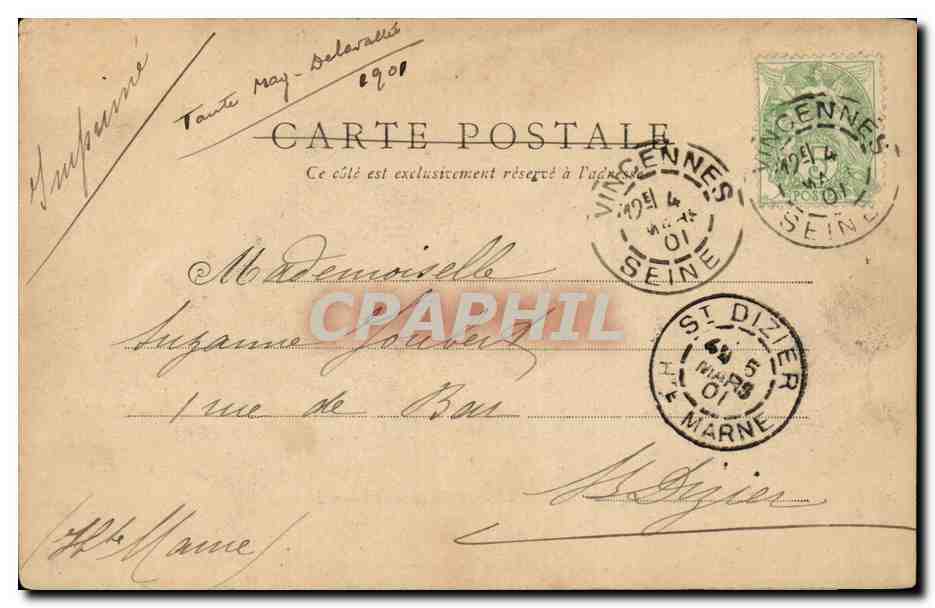 Imprimé
Tante May-Delavallée
1901
CARTE POSTALE
Ce côté est exclusivement réservé à l'adresse
VINCENNES
12E 4
MARS
01
SEINE
VINCENNES
12E 4
MARS
01
SEINE
5
POSTES
Mademoiselle
Suzanne Gouvert
CPAPHIL
1 rue de Bar
St Dizier
(Hte Marne)
ST DIZIER
5
MARS
01
HTE MARNE